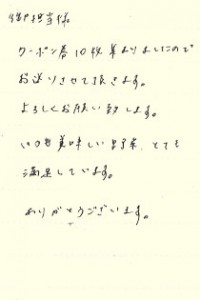 担当様
クーポン券10枚集まりましたので
お送りさせて頂きます。
よろしくお願い致します。
いつも美味しいお菓子、とても
満足しています。
ありがとうございます。